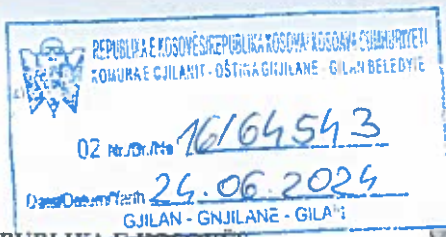 REPUBLIKA E KOSOVËS/REPUBLIKA KOSOVA/KOSOVA CUMHURİYETİ
KOMUNA E GJILANIT - OPŠTINA GNJILANE - GILAN BELEDİYE
02 Nr./Br./No 16/64543
Data/Datum/Tarih 24.06.2024
GJILAN - GNJILANE - GILAN